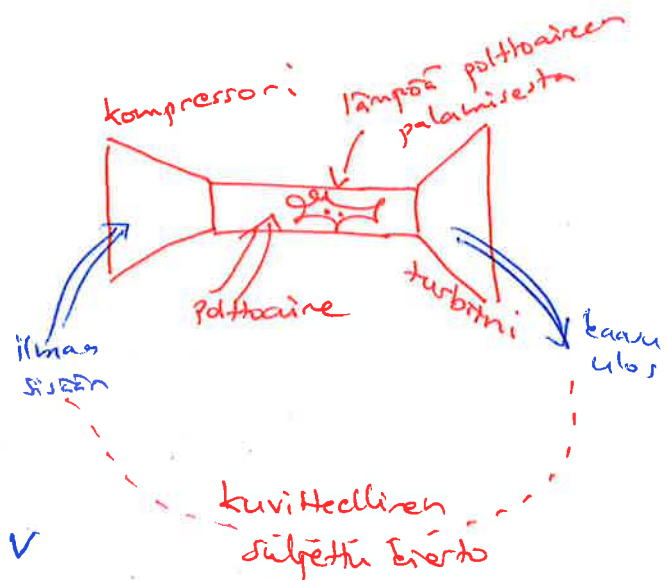 kompressori
lämpöä polttoaineen
palamisesta
polttoaine
turbiini
ilmaa
sisään
kaasu
ulos
kuvitteellinen
suljettu kierto
V